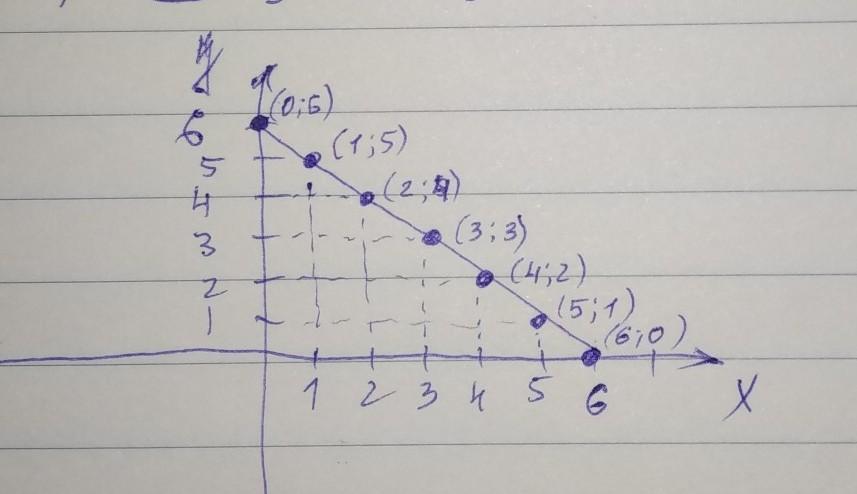 y
(0;6)
6
(1;5)
5
(2;4)
4
(3;3)
3
(4;2)
2
(5;1)
1
(6;0)
1 2 3 4 5 6
X